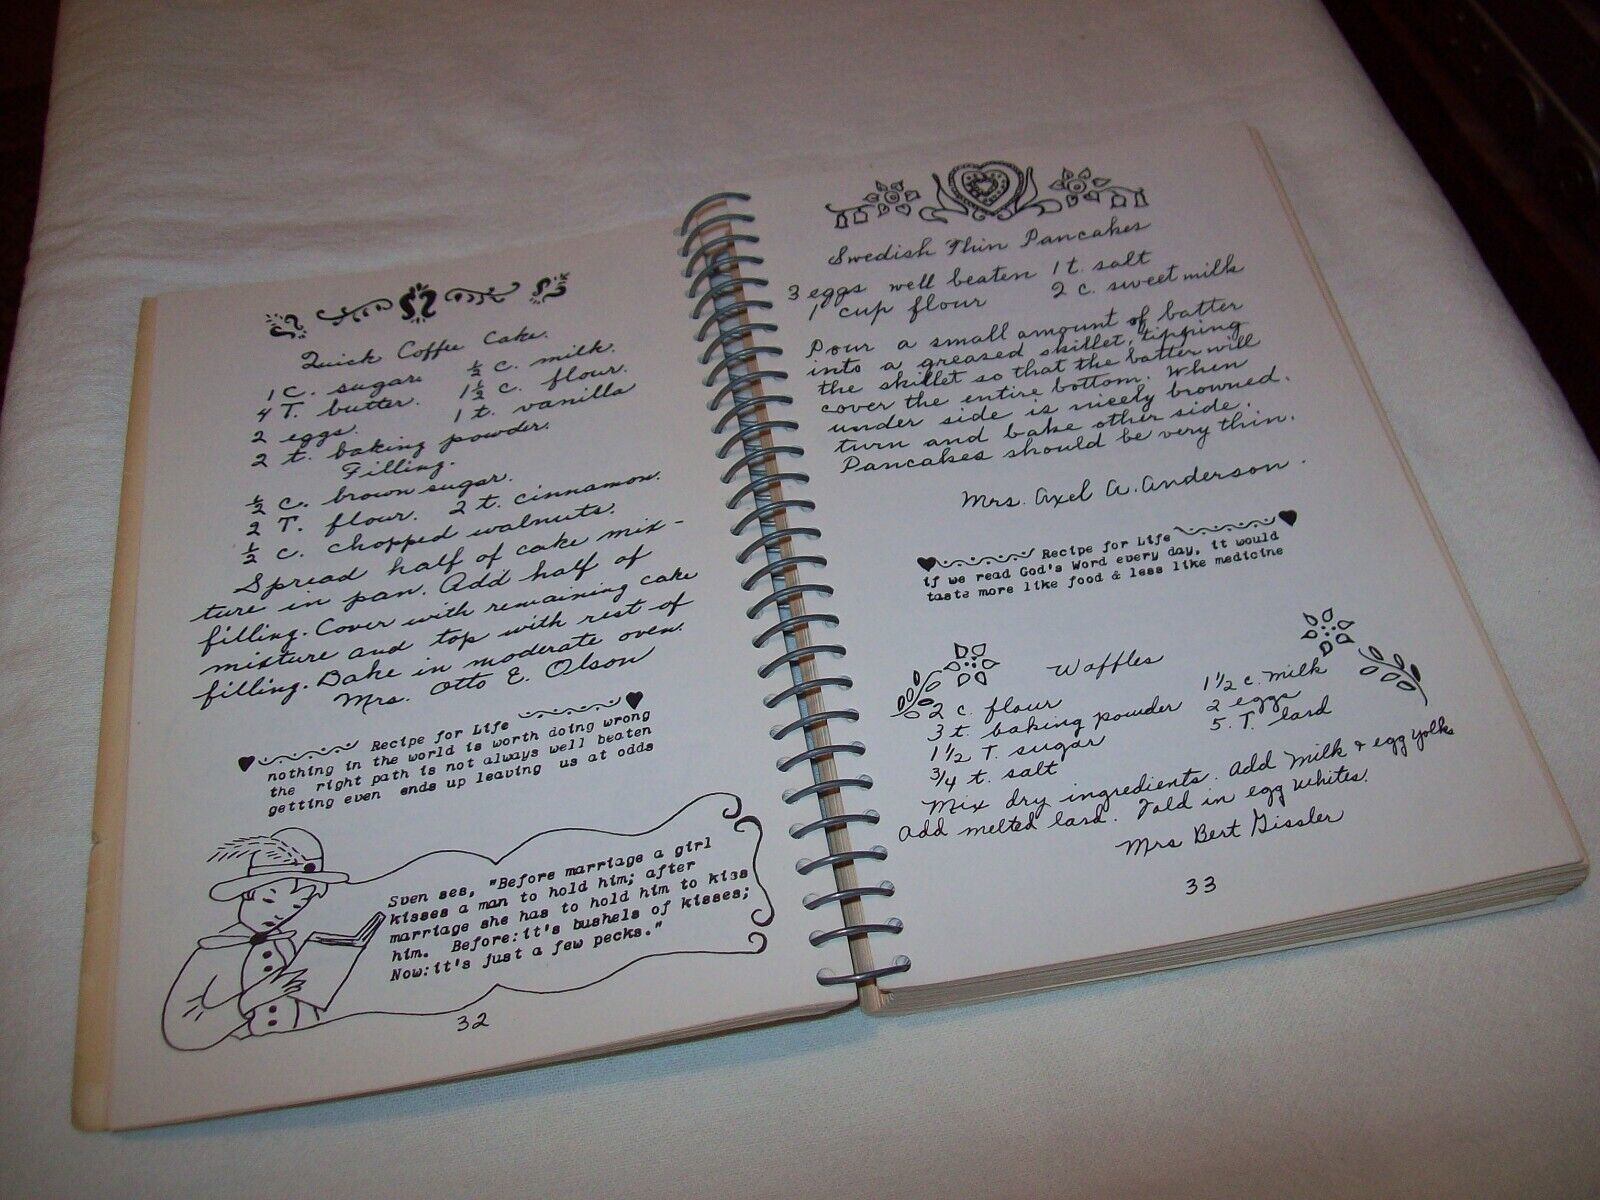 Quick Coffee Cake.
1 C. sugar. ½ c. milk.
4 T. butter. 1½ c. flour.
2 eggs. 1 t. vanilla
2 t. baking powder.
Filling.
½ c. brown sugar.
2 T. flour. 2 t. cinnamon.
½ c. chopped walnuts.
Spread half of cake mix-
ture in pan. Add half of
filling. Cover with remaining cake
mixture and top with rest of
filling. Bake in moderate oven.
Mrs. Otto E. Olson
Recipe for Life
nothing in the world is worth doing wrong
the right path is not always well beaten
getting even ends up leaving us at odds
Sven ses, "Before marriage a girl
kisses a man to hold him; after
marriage she has to hold him to kiss
him. Before:it's bushels of kisses;
Now:it's just a few pecks."
32
Swedish Thin Pancakes
3 eggs well beaten 1 t. salt
1 cup flour 2 c. sweet milk
Pour a small amount of batter
into a greased skillet, tipping
the skillet so that the batter will
cover the entire bottom. When
under side is nicely browned,
turn and bake other side.
Pancakes should be very thin.
Mrs. Axel A. Anderson.
Recipe for Life
if we read God's Word every day, it would
taste more like food & less like medicine
Waffles
2 c. flour 1½ c. milk
3 t. baking powder 2 eggs
1½ T. sugar 5. T. lard
¾ t. salt
Mix dry ingredients. Add milk & egg yolks
Add melted lard. Fold in egg whites.
Mrs Bert Gissler
33